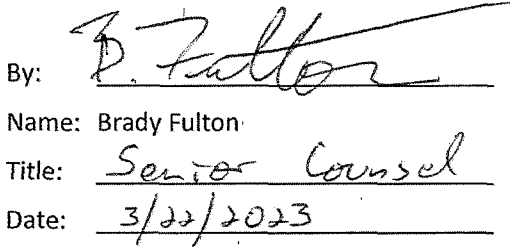 By: B. Fulton
Name: Brady Fulton
Title: Senior Counsel
Date: 3/22/2023